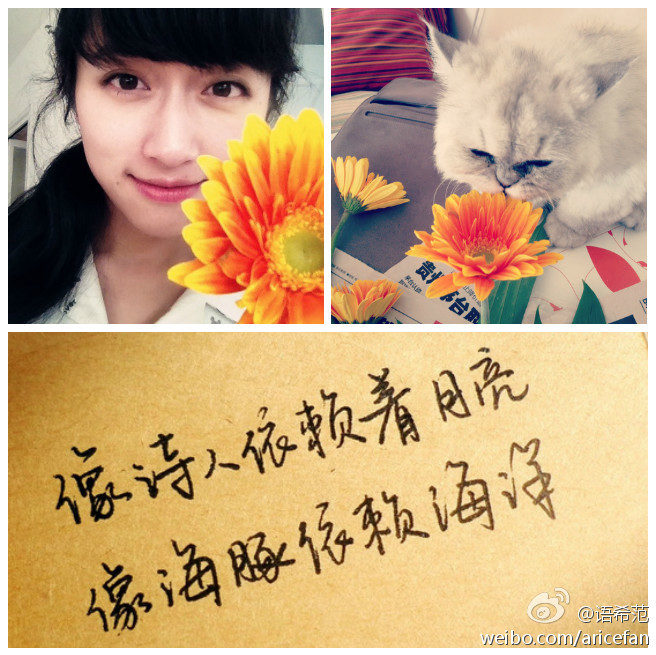 贵州茅台
像诗人依赖着月亮
像海豚依赖海洋
@语希范
weibo.com/aricefan